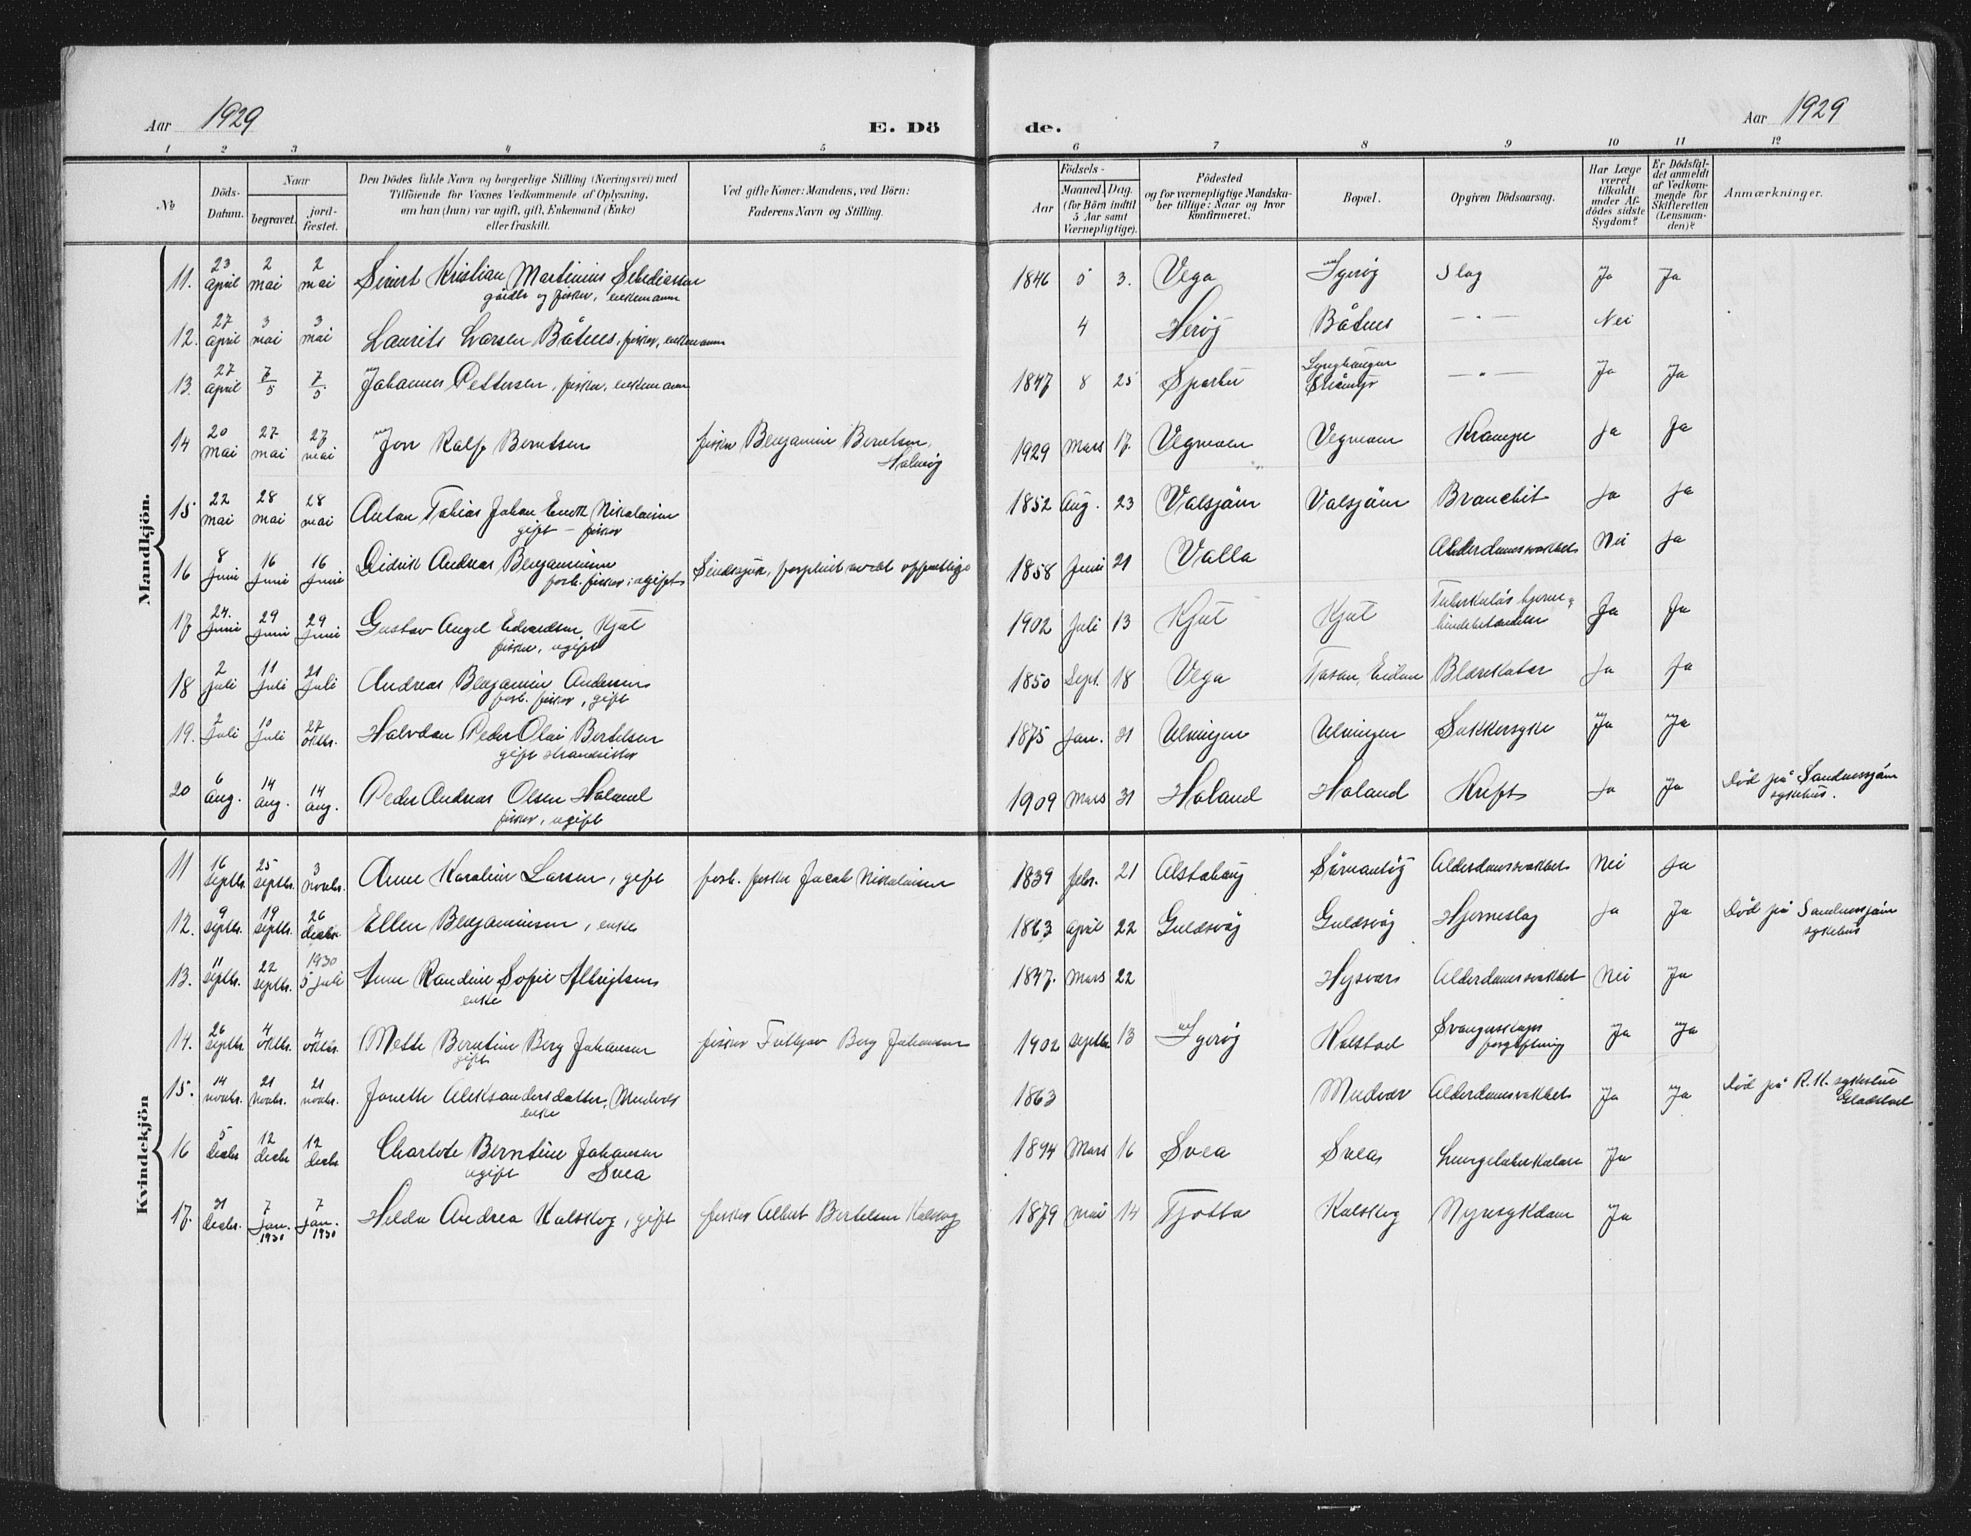 Aar 1929
E. Dö
de.
Aar 1929
1 2 3 4 5 6 7 8 9 10 11 12
№
Döds-Datum.
Naar
begravet.
jord-fæstet.
Den Dödes fulde Navn og borgerlige Stilling (Næringsvei) med
Tilföiende for Voxnes Vedkommende af Oplysning,
om han (hun) var ugift, gift, Enkemand (Enke)
eller fraskilt.
Ved gifte Koner: Mandens, ved Börn:
Faderens Navn og Stilling.
Födsels-
Aar
Maaned. Dag.
(for Börn indtil
5 Aar samt
Værnepligtige).
Födested
og for værnepligtige Mandska-
ber tillige: Naar og hvor
konfirmeret.
Bopæl.
Opgiven Dödsaarsag.
Har Læge
været
tilkaldt
under Af-
dödes sidste
Sygdom?
Er Dödsfal-
det anmeldt
af Vedkom-
mende for
Skifteretten
(Lensman-
den)?
Anmærkninger.
Mandkjön.
11. 23 april 2 mai 2 mai Sivert Kristian Martinius 1846 5 3. Vega Slag Ja Ja
og fisker, enkemann
12. 27 april 3 mai 3 mai Laurits Larsen Båtnes, fisker, enkemann 4 Herøy Båtnes — " — Nei
13. 27 april 7/5 7/5 Johannes Pettersen, fisker, enkemann 1847 8 25 Sparbu — " — Ja Ja
14 20 mai 27 mai 27 mai Jon Ralf Berntsen fisker Benjamin Berntsen, 1929 Mars 17. Vegmoen Vegmoen Krampe Ja Ja
15 22 mai 28 mai 28 mai Anton Tobias Johan Nikolaisen 1852 Aug. 23 Valsjøen Valsjøen Bronchit Ja Ja
gift — fisker
16 8 Juni 16 Juni 16 Juni Didrik Andreas Benjaminsen Sindssyk, forpleiet av det offentlige 1858 Juni 21 Valla Alderdomssvakhet Nei Ja
forh. fisker; ugift
17 24. Juni 29 Juni 29 Juni Gustav Angel Edvardsen, Kjul 1902 Juli 13 Kjul Kjul Tuberkuløs hjerne-
hindebetændelse Ja Ja
fisker, ugift
18 2 Juli 11 Juli 21 Juli Andreas Benjamin Andersen 1850 Sept. 18 Vega Blærekatar Ja Ja
forh. fisker, gift
19. 7 Juli 10 Juli 27 oktbr. Halvdan Peder Olai Bertelsen 1875 Jan. 31 Ulvingen Ulvingen Sukkersyke Ja Ja
gift strandsitter
20 6 Aug. 14 Aug. 14 Aug. Peder Andreas Olsen Haland 1909 Mars 31 Haland Haland Kreft Ja Ja Død på Sandnessjøen
sykehus.
fisker, ugift
Kvindekjön
11 16 septbr. 25 septbr. 3 novbr. Anne Karoline Larsen, gift forh. fisker Jacob Nikolaisen 1839 febr. 21 Alstahaug Alderdomssvakhet Nei Ja
12. 9 septbr. 19 septbr. 26 decbr Ellen Benjaminsen, enke 1863 april 22 Guldsvåg Guldsvåg Hjerneslag Ja Ja Død på Sandnessjøen
sykehus
13. 11 septbr. 22 septbr. 1930 5 juli Anne Randine Sofie Albrigtsen 1847. Mars 22 Hysvær Alderdomssvakhet Nei Ja
enke
14. 26 septbr. 4 oktbr. 4 oktbr. Mette Berntine Berg Johansen fisker Fritjov Berg Johansen 1902 septbr 13 Kalstad Svangerskaps
forgiftning Ja Ja
gift
15. 14 novbr. 21 novbr. 21 novbr. Jonette Aleksandersdatter, 1863 Mudvær Alderdomssvakhet Ja Ja Død på R.K. sykestue
Gladstad
enke
16 5 decbr 12 decbr 12 decbr Charlote Berntine Johansen 1894 Mars 16 Svea Svea, Lungetuberkulose Ja
ugift Svea
17. 31 decbr. 7 jan. 1930 7 jan. 1930 Helda Andrea Kalskog, gift fisker Albert Bertelsen Kalskog 1879 mai 14 Tjøtta Kalskog Nyresykdom Ja